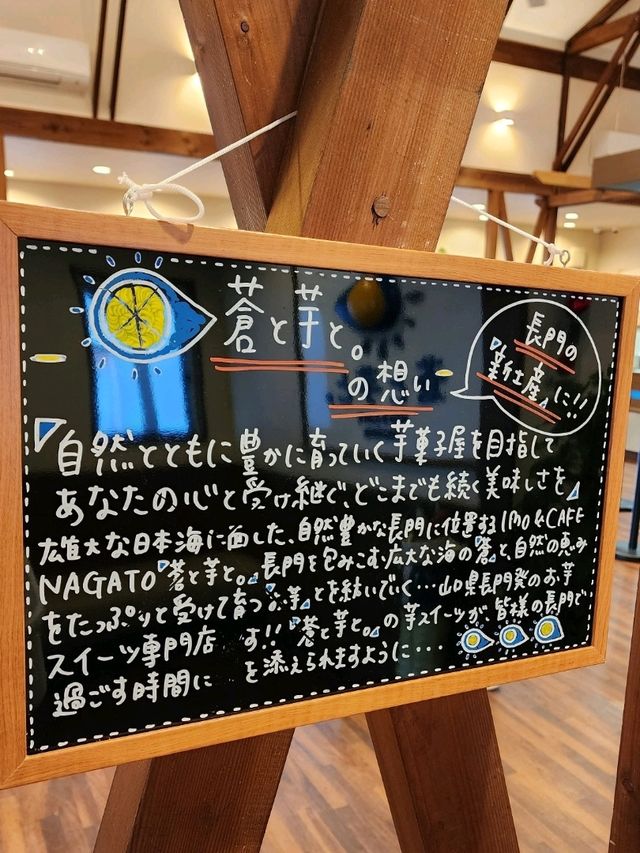 蒼と芋と。
の想い
長門の
『新土産』に!!
『自然とともに豊かに育っていく芋菓子屋を目指して
あなたの心と受け継ぐ、どこまでも続く美味しさを』
雄大な日本海に面した、自然豊かな長門に位置するIMO&CAFE
NAGATO『蒼と芋と。』長門を包みこむ広大な海の『蒼』と、自然の恵み
をたっぷりと受けて育つ『芋』とを紡いでいく・・・山口県長門発のお芋
スイーツ専門店です!!『蒼と芋と。』の芋スイーツが皆様の長門で
過ごす時間に を添えられますように・・・